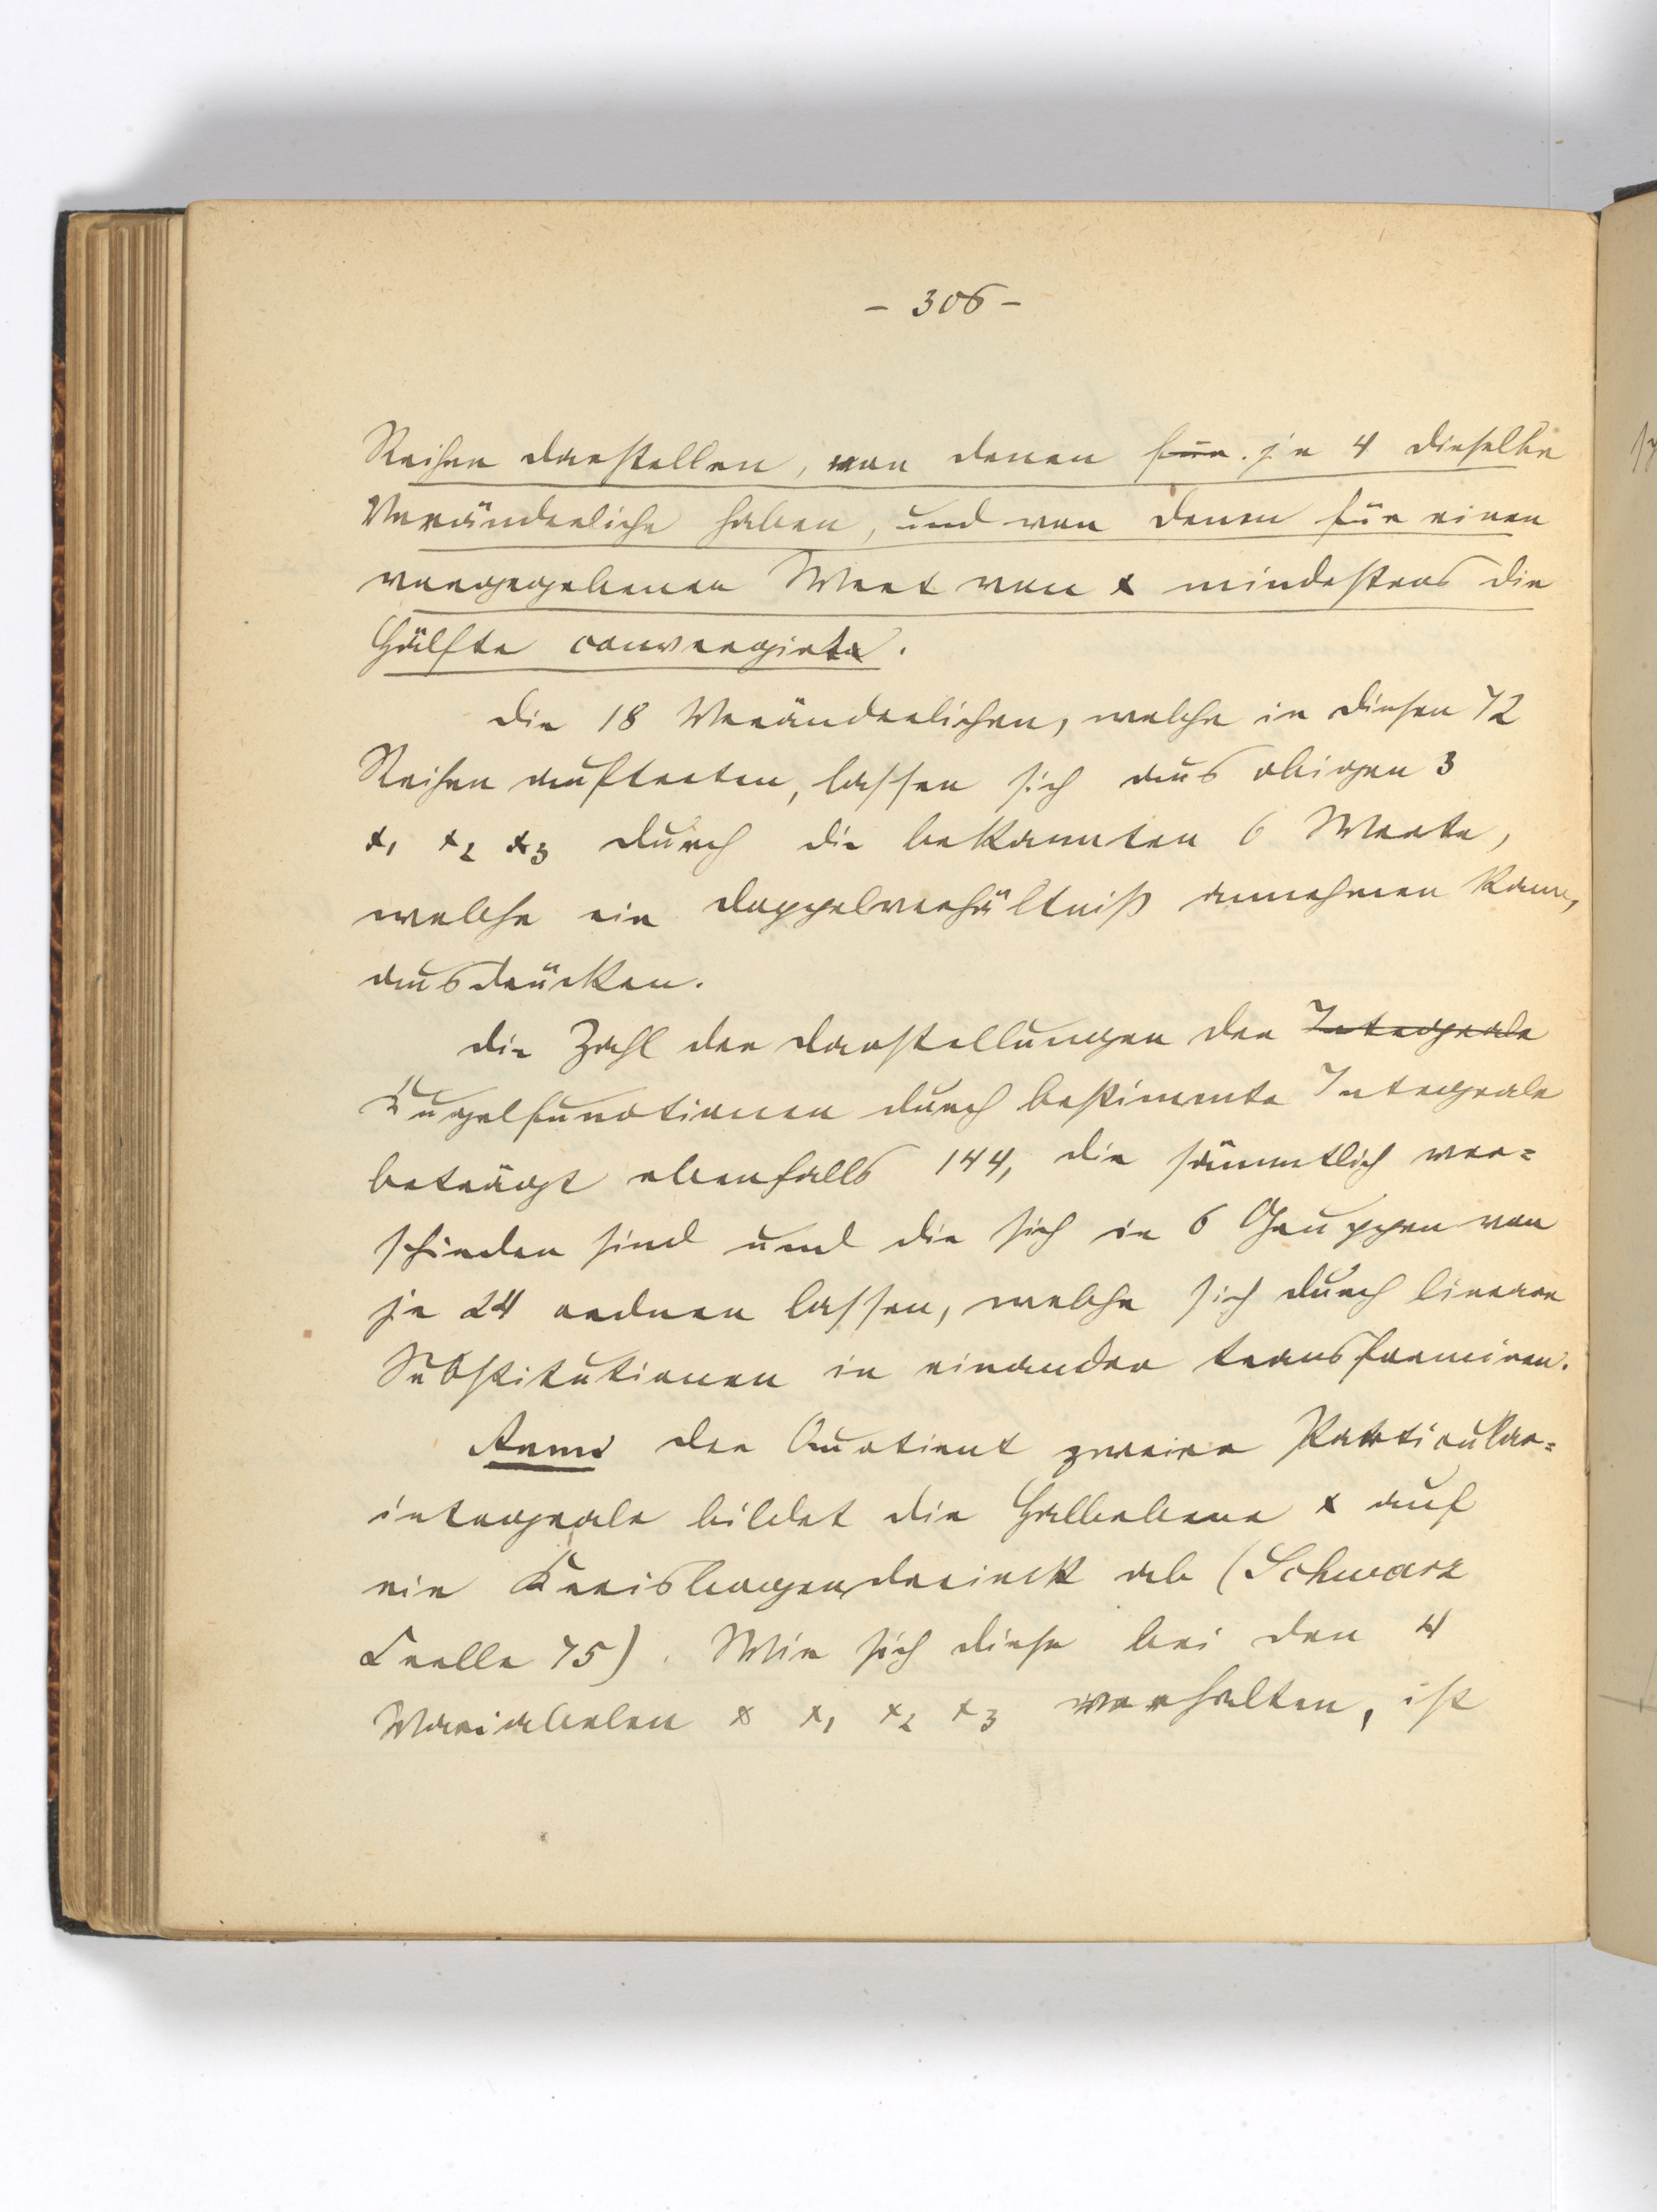 – 306 –
Reihen darstellen, von denen je 4 dieselbe
Veränderliche haben, und von denen für einen
vorgegebenen Wert von x mindestens die
Hälfte convergirt.
Die 18 Veränderlichen, welche in diesen 72
Reihen auftreten, lassen sich aus obigen 3
x₁ x₂ x₃ durch die bekannten 6 Werte,
welche ein Doppelverhältniß annehmen kann,
ausdrücken.
Die Zahl der Darstellungen der Integrale
Kugelfunctionen durch bestimmte Integrale
beträgt ebenfalls 144, die sämmtlich ver=
schieden sind und die sich in 6 Gruppen von
je 24 ordnen lassen, welche sich durch lineare
Substitutionen in einander transformiren.
Anm. Der Quotient zweier Partikular=
integrale bildet die Halbebene x auf
ein Kreisbogendreieck ab (Schwarz
Crelle 75). Wie sich diese bei den 4
Variabelen x x₁ x₂ x₃ verhalten, ist